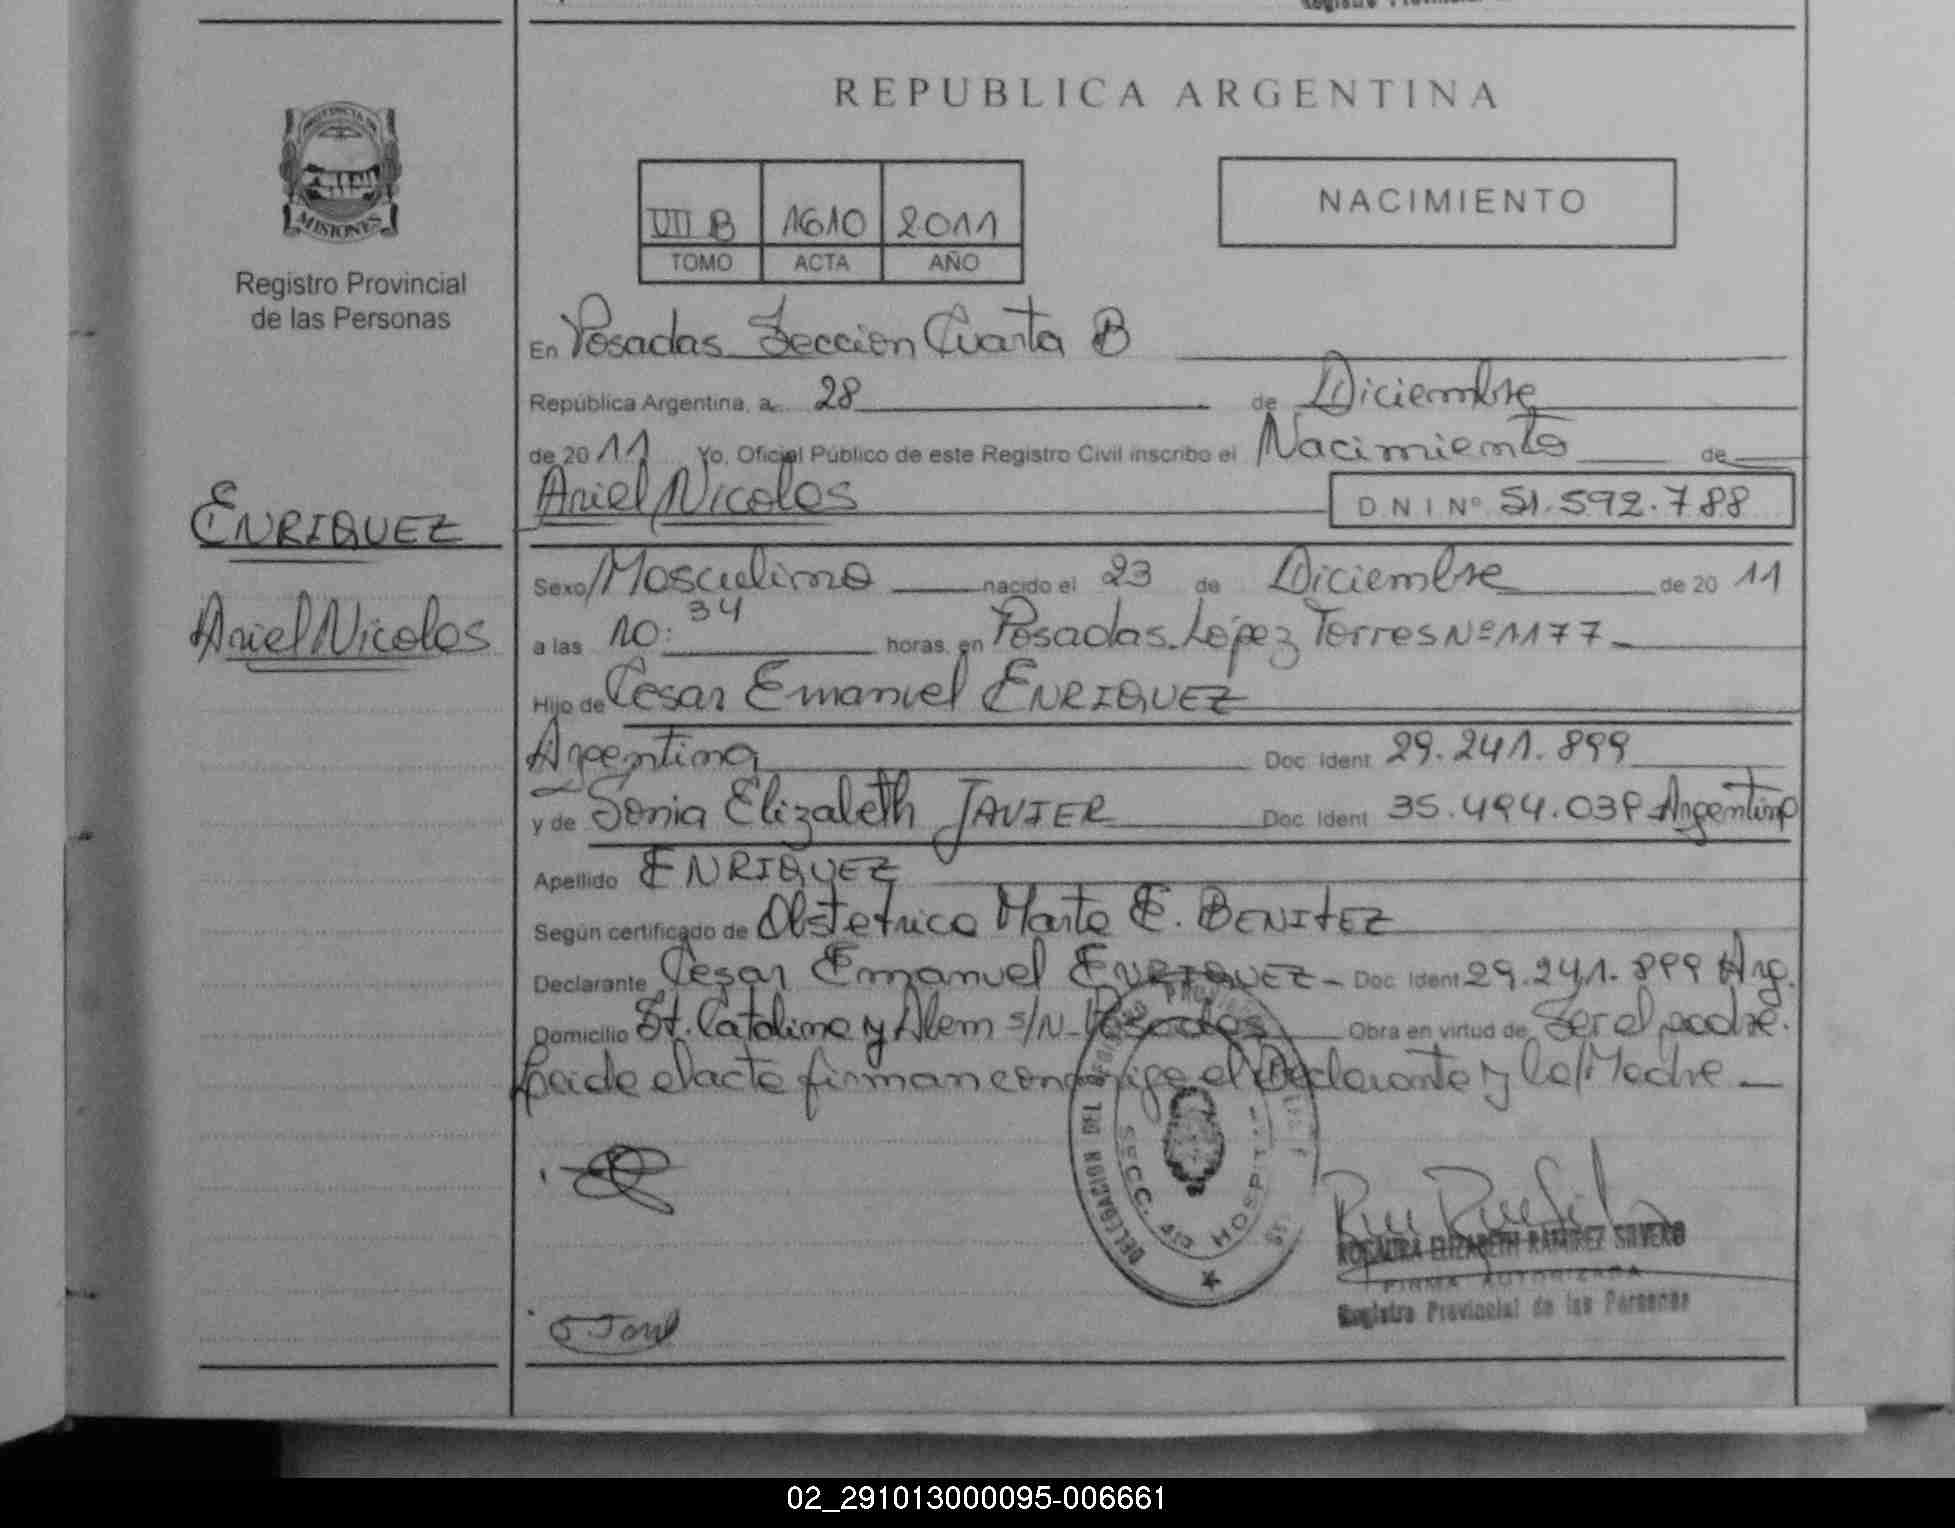 REPUBLICA ARGENTINA
PROVINCIA DE
MISIONES
Registro Provincial
de las Personas
VII B 1610 2011
TOMO ACTA AÑO
NACIMIENTO
En Posadas Seccion Cuarta B
República Argentina, a 28 de Diciembre
de 2011 Yo, Oficial Público de este Registro Civil inscribo el Nacimiento de
Ariel Nicolas D N I Nº 51.592.788
ENRIQUEZ
Ariel Nicolas
Sexo Masculino nacido el 23 de Diciembre de 2011
a las 10:34 horas, en Posadas. López Torres Nº 1177
Hijo de Cesar Emanuel ENRIQUEZ
Argentina Doc. Ident. 29.241.899
y de Sonia Elizabeth JAVIER Doc. Ident. 35.494.038 Argentina
Apellido ENRIQUEZ
Según certificado de Obstetrica Marta E. BENITEZ
Declarante Cesar Emanuel ENRIQUEZ - Doc. Ident 29.241.899 Arg.
Domicilio St. Catalina y Alem s/N - Posadas Obra en virtud de Ser el padre.
Leida el acta firman conmigo el Declarante y la Madre
DELEGACION DEL REGISTRO PROVINCIAL
SECC. 4ta HOSPITAL
ROSAURA ELIZABETH RAMIREZ SILVERO
FIRMA AUTORIZADA
Registro Provincial de las Personas
02_291013000095-006661